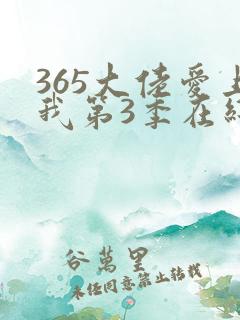 365大佬爱上
我第3季在线
谷萬里
未经同意禁止转载